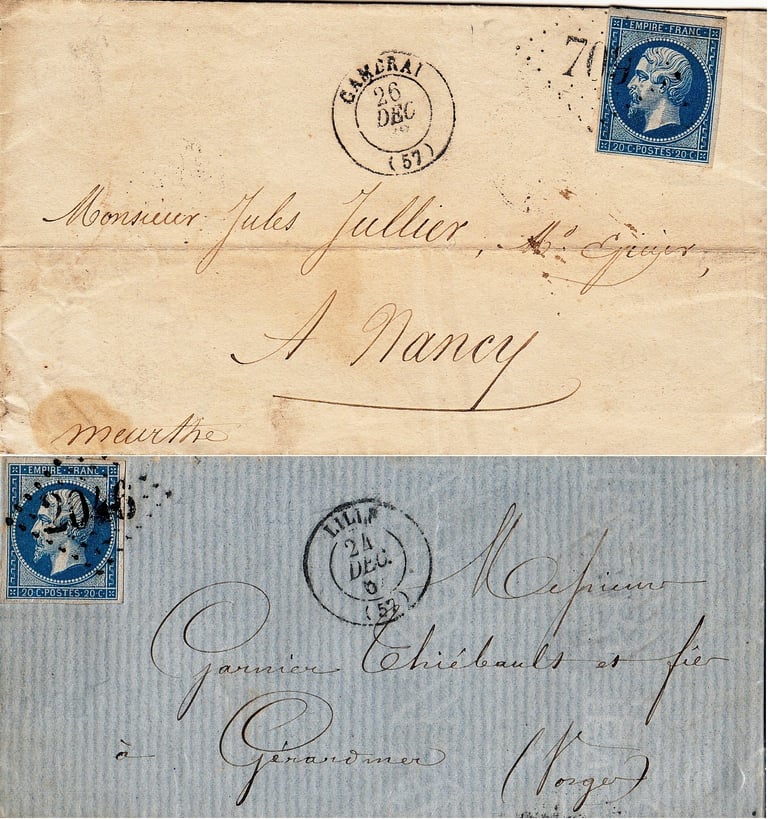 EMPIRE FRANC
709
20 C · POSTES · 20 C
CAMBRAI
26
DEC
(57)
Monsieur Jules Jullier,
A Nancy
meurthe
EMPIRE FRANC
2046
20 C · POSTES · 20 C
LILLE
24
DEC.
6
(57)
Messieurs
Garnier Thiébault et
à Gérardmer (Vosges)